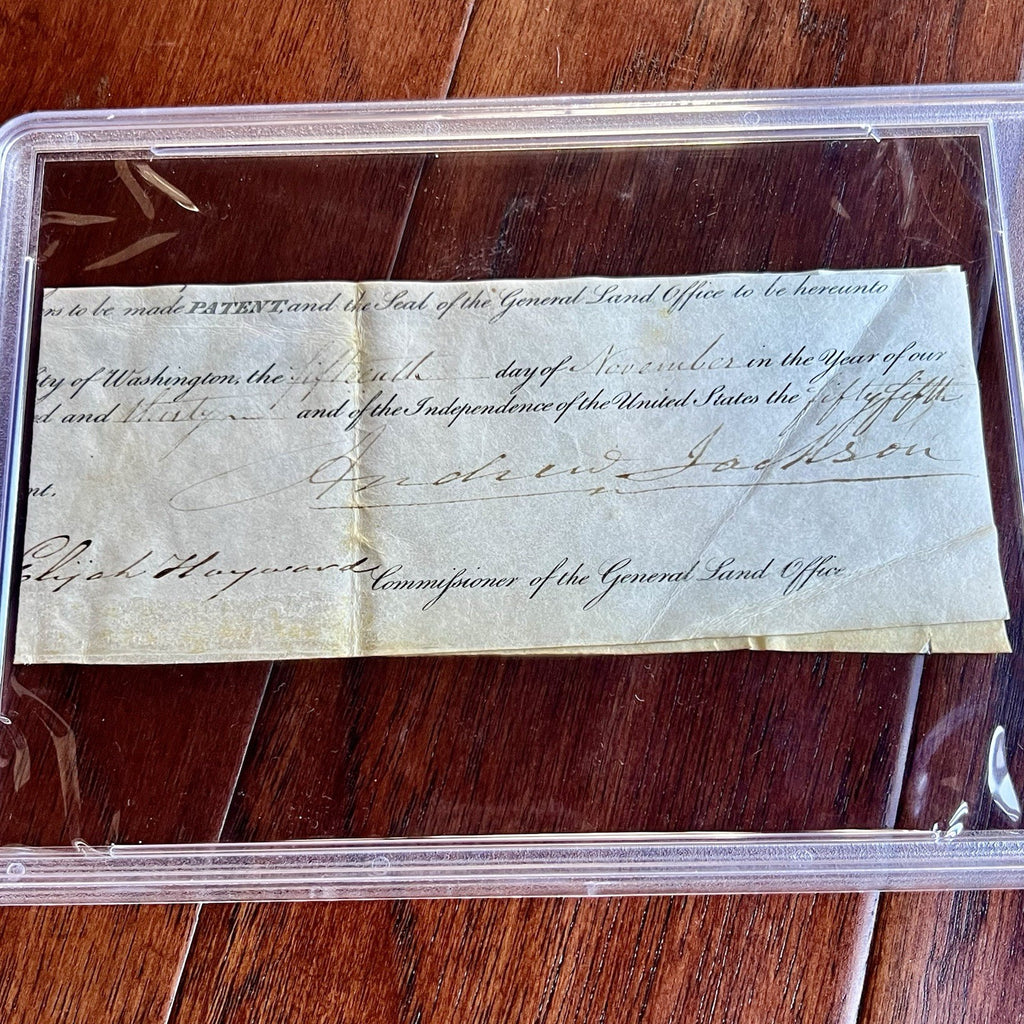 rs to be made PATENT, and the Seal of the General Land Office to be hereunto
ity of Washington, the fifteenth day of November in the Year of our
d and thirty and of the Independence of the United States the fifty fifth
Andrew Jackson
nt.
Elijah Hayward Commiſsioner of the General Land Office